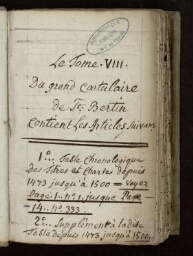 Le Tome VIII.
Du grand Cartulaire
de St. Bertin
contient les Articles suivans
1°.. Table Chronologique
Des Titres et Chartes depuis
1473 jusqu'à 1500 = Voyez
Page 1.. n° 1. jusque Page
14.. n° 333
2°... Supplément à ladite
Table depuis 1473 jusqu'à 1500.